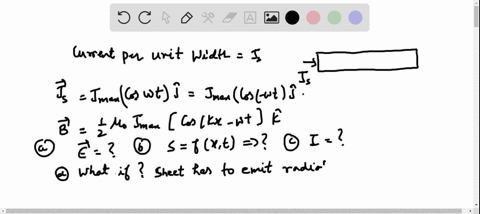 Current per unit width = Is
Is
J⃗s = Jmax (Cos wt) ĵ = Jmax (Cos(-wt) ĵ.
B⃗ = 1/2 μ0 Jmax [Cos(kx - wt)] k̂
(a) E⃗ = ? (b) S = f(x,t) => ? (c) I = ?
(d) What if ? Sheet has to emit radia